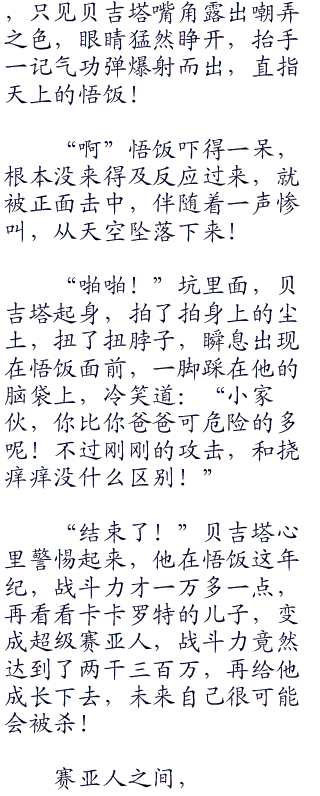 ，只见贝吉塔嘴角露出嘲弄
之色，眼睛猛然睁开，抬手
一记气功弹爆射而出，直指
天上的悟饭！
“啊”悟饭吓得一呆，
根本没来得及反应过来，就
被正面击中，伴随着一声惨
叫，从天空坠落下来！
“啪啪！”坑里面，贝
吉塔起身，拍了拍身上的尘
土，扭了扭脖子，瞬息出现
在悟饭面前，一脚踩在他的
脑袋上，冷笑道：“小家
伙，你比你爸爸可危险的多
呢！不过刚刚的攻击，和挠
痒痒没什么区别！”
“结束了！”贝吉塔心
里警惕起来，他在悟饭这年
纪，战斗力才一万多一点，
再看看卡卡罗特的儿子，变
成超级赛亚人，战斗力竟然
达到了两千三百万，再给他
成长下去，未来自己很可能
会被杀！
赛亚人之间，